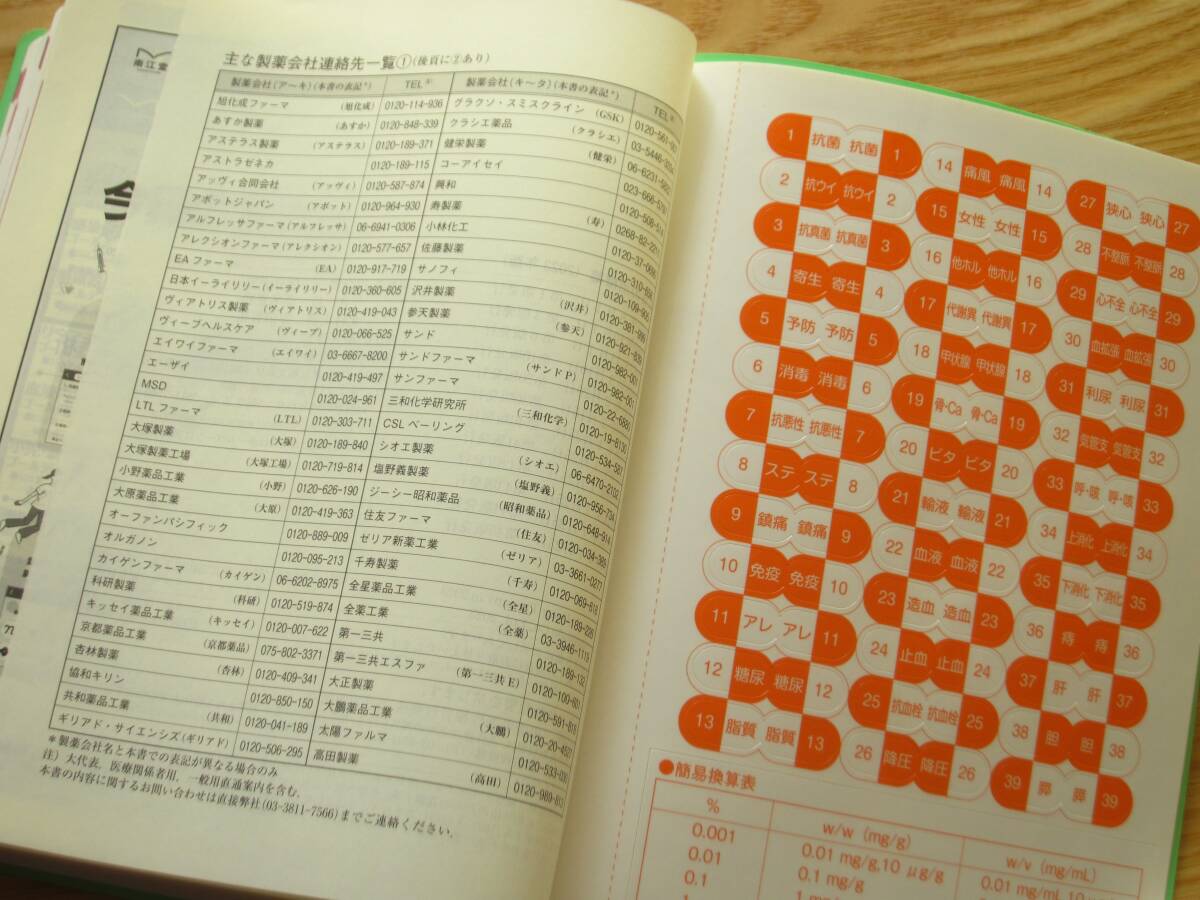 南江堂
主な製薬会社連絡先一覧①(後頁に②あり)
製薬会社(ア〜キ)(本書の表記*) TEL 製薬会社(キ〜タ)(本書の表記*) TEL
旭化成ファーマ (旭化成) 0120-114-936 グラクソ・スミスクライン (GSK)
あすか製薬 (あすか) 0120-848-339 クラシエ薬品 (クラシエ)
アステラス製薬 (アステラス) 0120-189-371 健栄製薬 (健栄)
アストラゼネカ 0120-189-115 コーアイセイ
アッヴィ合同会社 (アッヴィ) 0120-587-874 興和
アボットジャパン (アボット) 0120-964-930 寿製薬 (寿)
アルフレッサファーマ(アルフレッサ) 06-6941-0306 小林化工
アレクシオンファーマ(アレクシオン) 0120-577-657 佐藤製薬
EA ファーマ (EA) 0120-917-719 サノフィ
日本イーライリリー(イーライリリー) 0120-360-605 沢井製薬 (沢井)
ヴィアトリス製薬 (ヴィアトリス) 0120-419-043 参天製薬 (参天)
ヴィーブヘルスケア (ヴィーブ) 0120-066-525 サンド
エイワイファーマ (エイワイ) 03-6667-8200 サンドファーマ (サンドP)
エーザイ 0120-419-497 サンファーマ
MSD 0120-024-961 三和化学研究所 (三和化学)
LTL ファーマ (LTL) 0120-303-711 CSL ベーリング
大塚製薬 (大塚) 0120-189-840 シオエ製薬 (シオエ)
大塚製薬工場 (大塚工場) 0120-719-814 塩野義製薬 (塩野義)
小野薬品工業 (小野) 0120-626-190 ジーシー昭和薬品 (昭和薬品)
大原薬品工業 (大原) 0120-419-363 住友ファーマ (住友)
オーファンパシフィック 0120-889-009 ゼリア新薬工業 (ゼリア)
オルガノン 0120-095-213 千寿製薬 (千寿)
カイゲンファーマ (カイゲン) 06-6202-8975 全星薬品工業 (全星)
科研製薬 (科研) 0120-519-874 全薬工業 (全薬)
キッセイ薬品工業 (キッセイ) 0120-007-622 第一三共
京都薬品工業 (京都薬品) 075-802-3371 第一三共エスファ (第一三共E)
杏林製薬 (杏林) 0120-409-341 大正製薬
協和キリン 0120-850-150 大鵬薬品工業 (大鵬)
共和薬品工業 (共和) 0120-041-189 太陽ファルマ
ギリアド・サイエンシズ(ギリアド) 0120-506-295 高田製薬 (高田)
*製薬会社名と本書での表記が異なる場合のみ
注)大代表,医療関係者用,一般用直通案内を含む.
本書の内容に関するお問い合わせは直接弊社(03-3811-7566)までご連絡ください.
1 抗菌 抗菌 1
2 抗ウイ 抗ウイ 2
3 抗真菌 抗真菌 3
4 寄生 寄生 4
5 予防 予防 5
6 消毒 消毒 6
7 抗悪性 抗悪性 7
8 ステ ステ 8
9 鎮痛 鎮痛 9
10 免疫 免疫 10
11 アレ アレ 11
12 糖尿 糖尿 12
13 脂質 脂質 13
14 痛風 痛風 14
15 女性 女性 15
16 他ホル 他ホル 16
17 代謝異 代謝異 17
18 甲状腺 甲状腺 18
19 骨・Ca 骨・Ca 19
20 ビタ ビタ 20
21 輸液 輸液 21
22 血液 血液 22
23 造血 造血 23
24 止血 止血 24
25 抗血栓 抗血栓 25
26 降圧 降圧 26
27 狭心 狭心 27
28 不整脈 不整脈 28
29 心不全 心不全 29
30 血拡張 血拡張 30
31 利尿 利尿 31
32 気管支 気管支 32
33 呼・咳 呼・咳 33
34 上消化 上消化 34
35 下消化 下消化 35
36 痔 痔 36
37 肝 肝 37
38 胆 胆 38
39 膵 膵 39
●簡易換算表
% w/w (mg/g) w/v (mg/mL)
0.001 0.01 mg/g,10 μg/g 0.01 mg/mL,10
0.01 0.1 mg/g
0.1